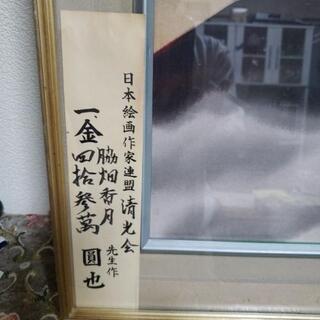 日本絵画作家連盟清光会
脇畑香月先生作
一、金四拾参萬圓也